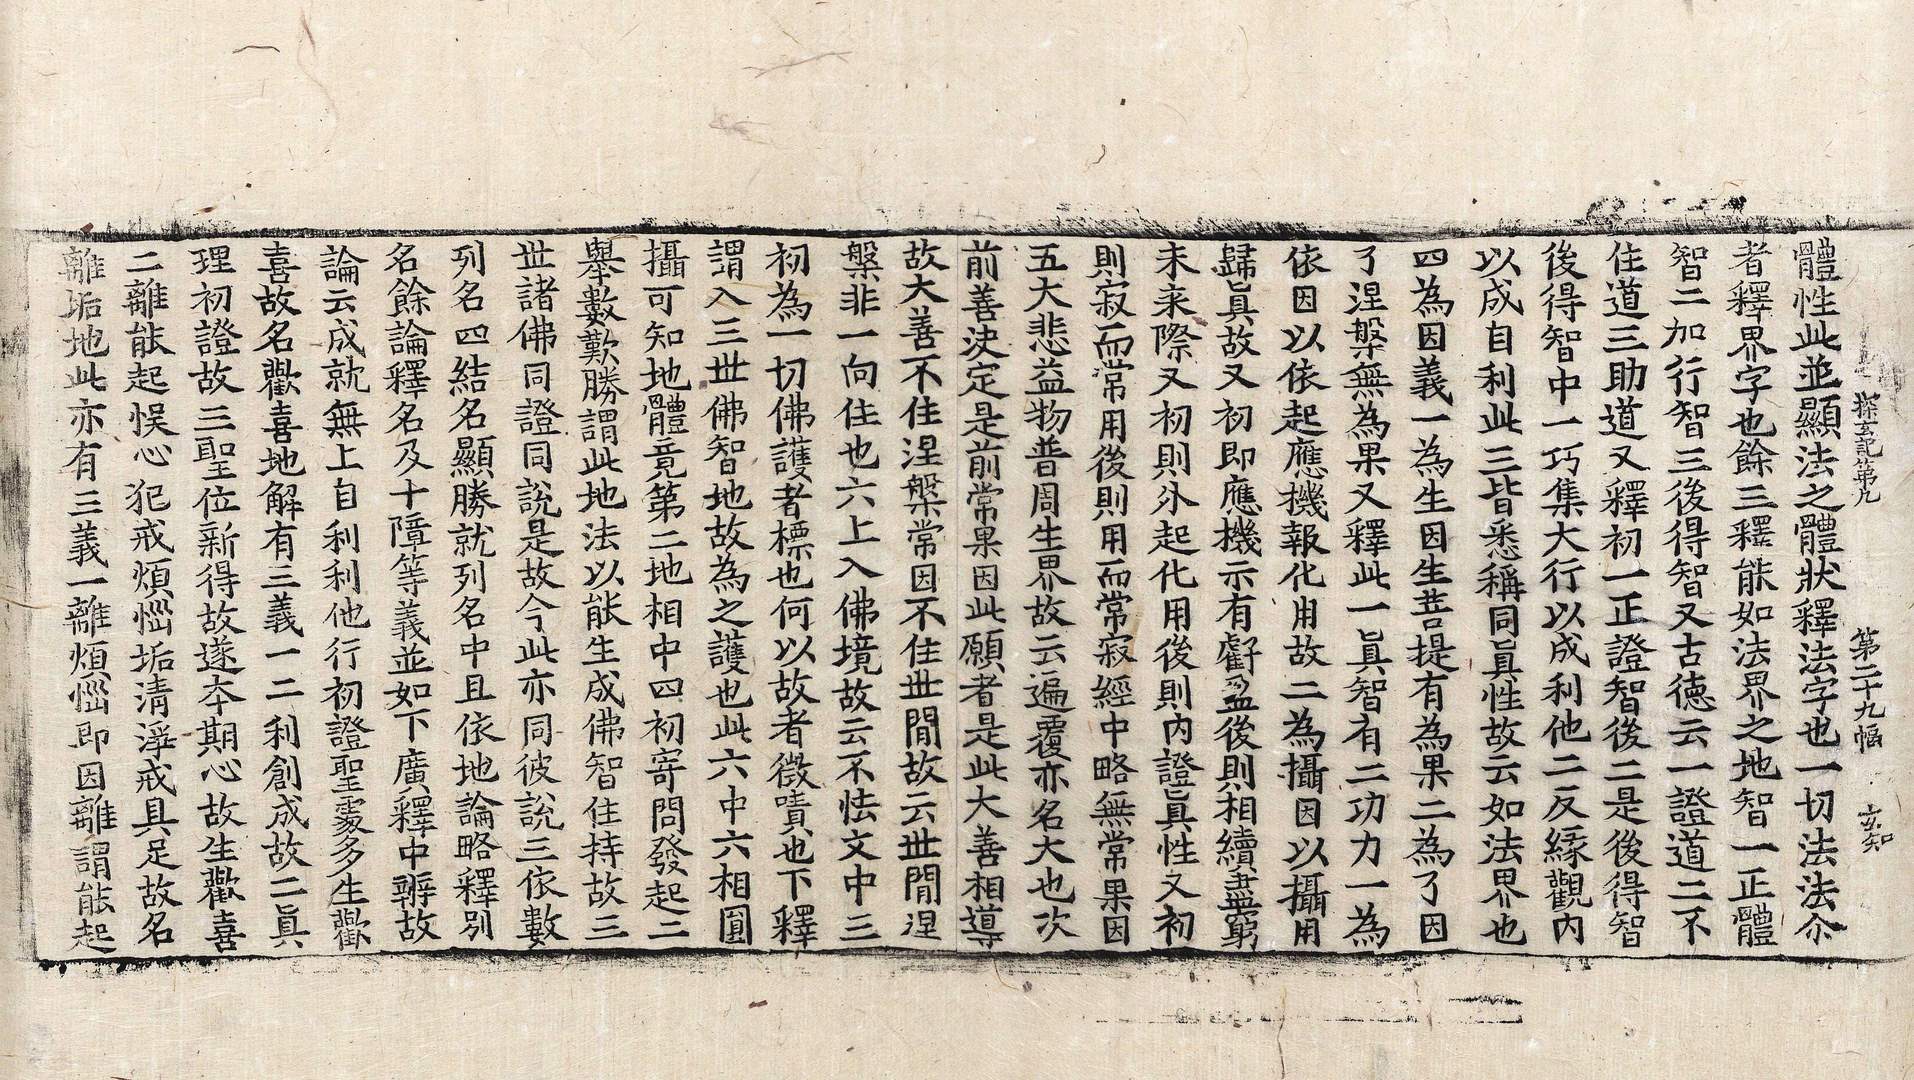 探玄記第九 第二十九幅 玄知
體性此並顯法之體狀釋法字也一切法法尒
者釋界字也餘三釋能如法界之地智一正體
智二加行智三後得智又古德云一證道二不
住道三助道又釋初一正證智後二是後得智
後得智中一巧集大行以成利他二反緣觀內
以成自利此三皆悉稱同真性故云如法界也
四為因義一為生因生菩提有為果二為了因
了涅槃無為果又釋此一真智有二功力一為
依因以依起應機報化用故二為攝因以攝用
歸真故又初即應機示有虧盈後則相續盡窮
未來際又初則外起化用後則內證真性又初
則寂而常用後則用而常寂經中略無常果因
五大悲益物普周生界故云遍覆亦名大也次
前善決定是前常果因此願者是此大善相導
故大善不住涅槃常因不住世間故云世間涅
槃非一向住也六上入佛境故云不怯文中三
初為一切佛護者標也何以故者徵嘖也下釋
謂入三世佛智地故為之護也此六中六相圓
攝可知地體竟第二地相中四初寄問發起二
舉數歎勝謂此地法以能生成佛智住持故三
世諸佛同證同說是故今此亦同彼說三依數
列名四結名顯勝就列名中且依地論略釋別
名餘論釋名及十障等義並如下廣釋中辨故
論云成就無上自利利他行初證聖處多生歡
喜故名歡喜地解有三義一二利創成故二真
理初證故三聖位新得故遂本期心故生歡喜
二離能起悞心犯戒煩惱垢清淨戒具足故名
離垢地此亦有三義一離煩惱即因離謂能起